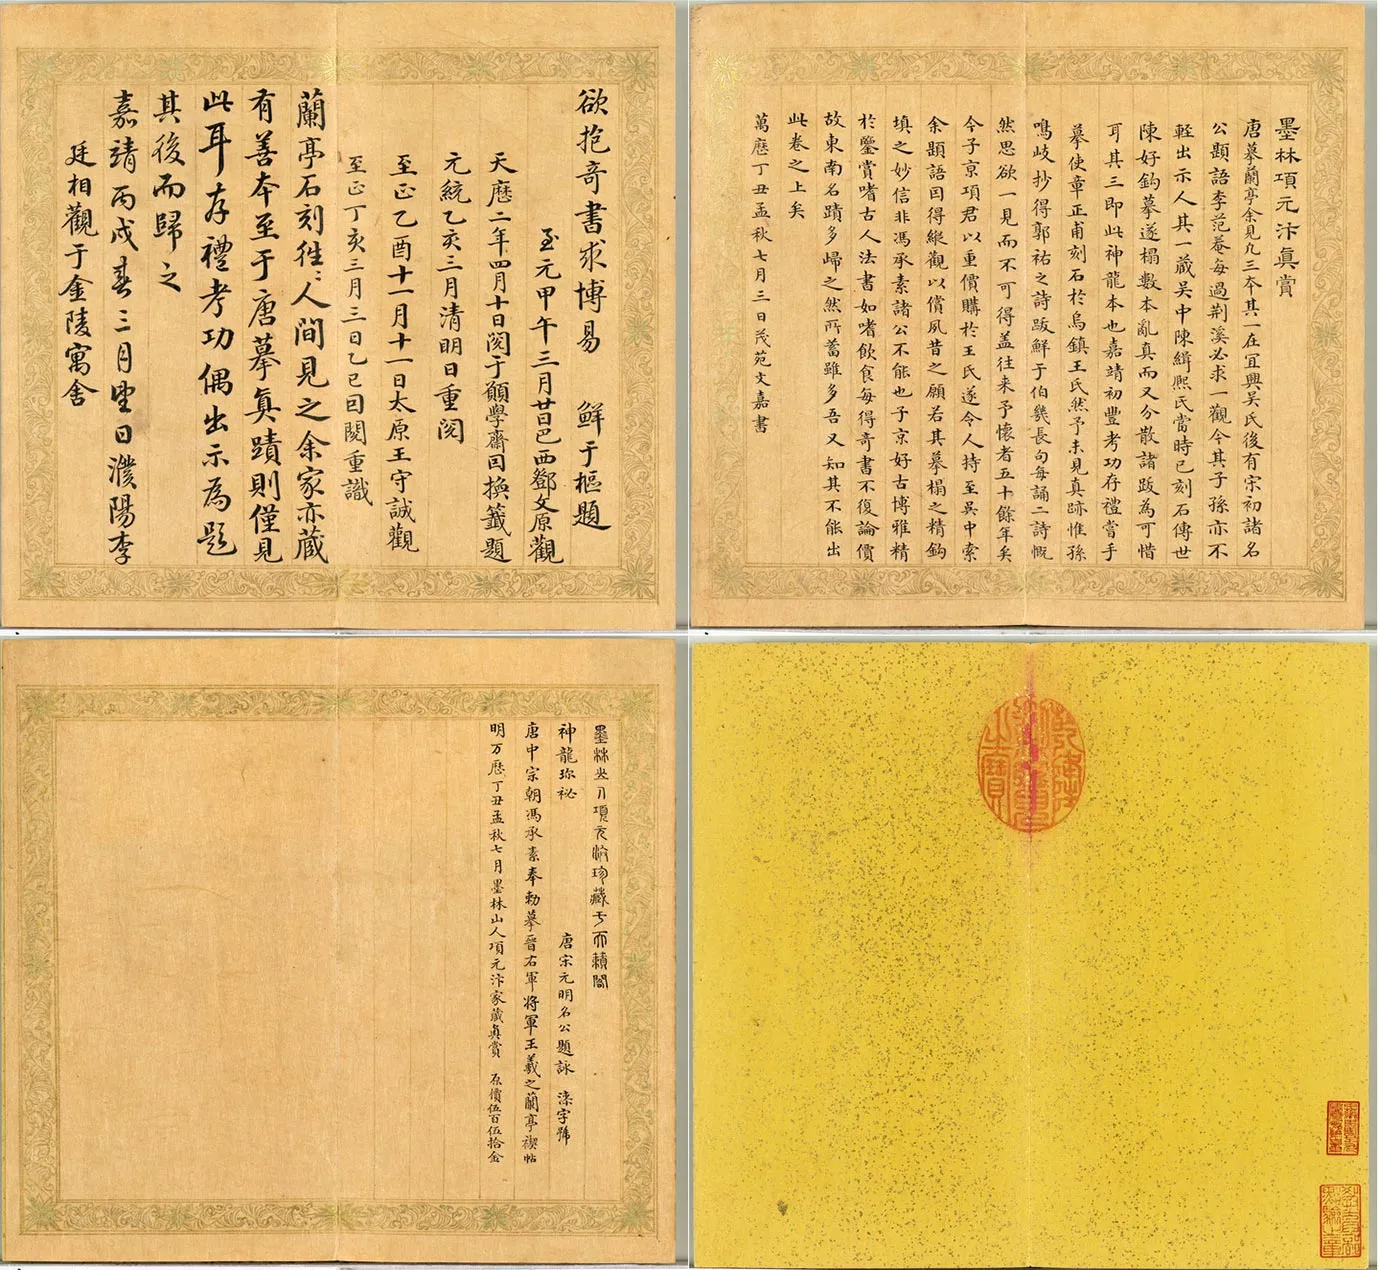 欲抱奇書求博易　鮮于樞題
至元甲午三月廿日巴西鄧文原觀
天曆二年四月十日閱于顧學齋因換籤題
元統乙亥三月清明日重閱
至正乙酉十一月十一日太原王守誠觀
至正丁亥三月三日乙巳因閱重識
蘭亭石刻徃〻人間見之余家亦藏
有善本至于唐摹真蹟則僅見
此耳存禮考功偶出示為題
其後而歸之
嘉靖丙戌春三月望日濮陽李
廷相觀于金陵寓舍
墨林項元汴真賞
唐摹蘭亭余見凡三本其一在宜興吳氏後有宋初諸名
公題語李范菴每過荆溪必求一觀今其子孫亦不
輕出示人其一藏吳中陳緝熙氏當時已刻石傳世
陳好鈎摹遂搨數本亂真而又分散諸跋為可惜
耳其三即此神龍本也嘉靖初豐考功存禮嘗手
摹使章正甫刻石於烏鎮王氏然予未見真跡惟孫
鳴歧抄得郭祐之詩跋鮮于伯幾長句每誦二詩慨
然思欲一見而不可得盖往来予懷者五十餘年矣
今子京項君以重價購於王氏遂令人持至吳中索
余題語因得縱觀以償夙昔之願若其摹搨之精鈎
填之妙信非馮承素諸公不能也子京好古博雅精
於鑒賞嗜古人法書如嗜飲食每得奇書不復論價
故東南名蹟多歸之然所蓄雖多吾又知其不能出
此卷之上矣
萬曆丁丑孟秋七月三日茂苑文嘉書
墨林山人項元汴珍藏于天籟閣
神龍珎祕　唐宋元明名公題詠　濼字號
唐中宗朝馮承素奉勑摹晉右軍將軍王羲之蘭亭禊帖
明万曆丁丑孟秋七月墨林山人項元汴家藏真賞　原價伍百伍拾金
乾隆御覽之寶